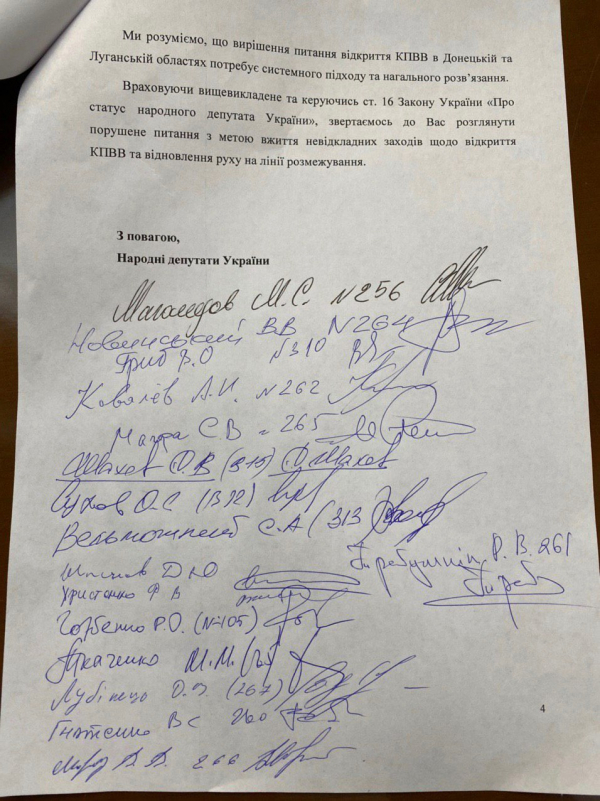 Ми розуміємо, що вирішення питання відкриття КПВВ в Донецькій та
Луганській областях потребує системного підходу та нагального розв’язання.
Враховуючи вищевикладене та керуючись ст. 16 Закону України «Про
статус народного депутата України», звертаємось до Вас розглянути
порушене питання з метою вжиття невідкладних заходів щодо відкриття
КПВВ та відновлення руху на лінії розмежування.
З повагою,
Народні депутати України
Магомедов М.С. N256
Новинський ВВ N264
Гриб В.О N310
Ковальов А.И. N262
Магера СВ 265
Шахов С.В
Сухов О.С
Вельможний С.А (313
Гиребучинін Р. В. 261
Шпенов Д Ю
Христенко Ф В
Горбенко Р.О. (N-105)
Ткаченко М.М.
Лубінець (267)
Гнатенко ВС 260
Мороз В.В. 266
4